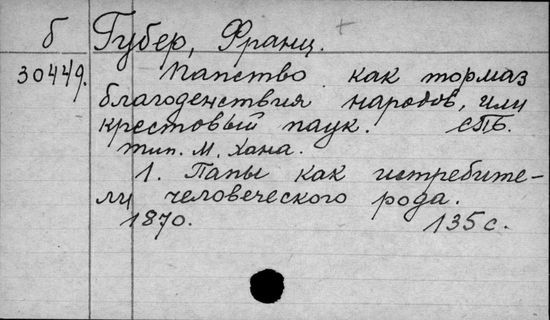 б Губер, Франц.
30449. Папство как тормаз
благоденствия народов, или
крестовый паук. СПБ.
тип. М. Хана.
1. Папы как истребите-
ли человеческого рода.
1870. 135 с.